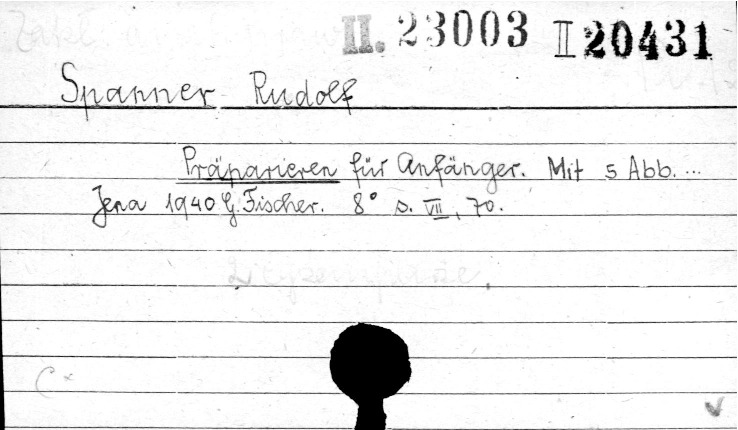 II. 23003 II 20431
Spanner Rudolf
Präparieren für Anfänger. Mit 5 Abb. ...
Jena 1940 G. Fischer. 8° s. VII, 70.